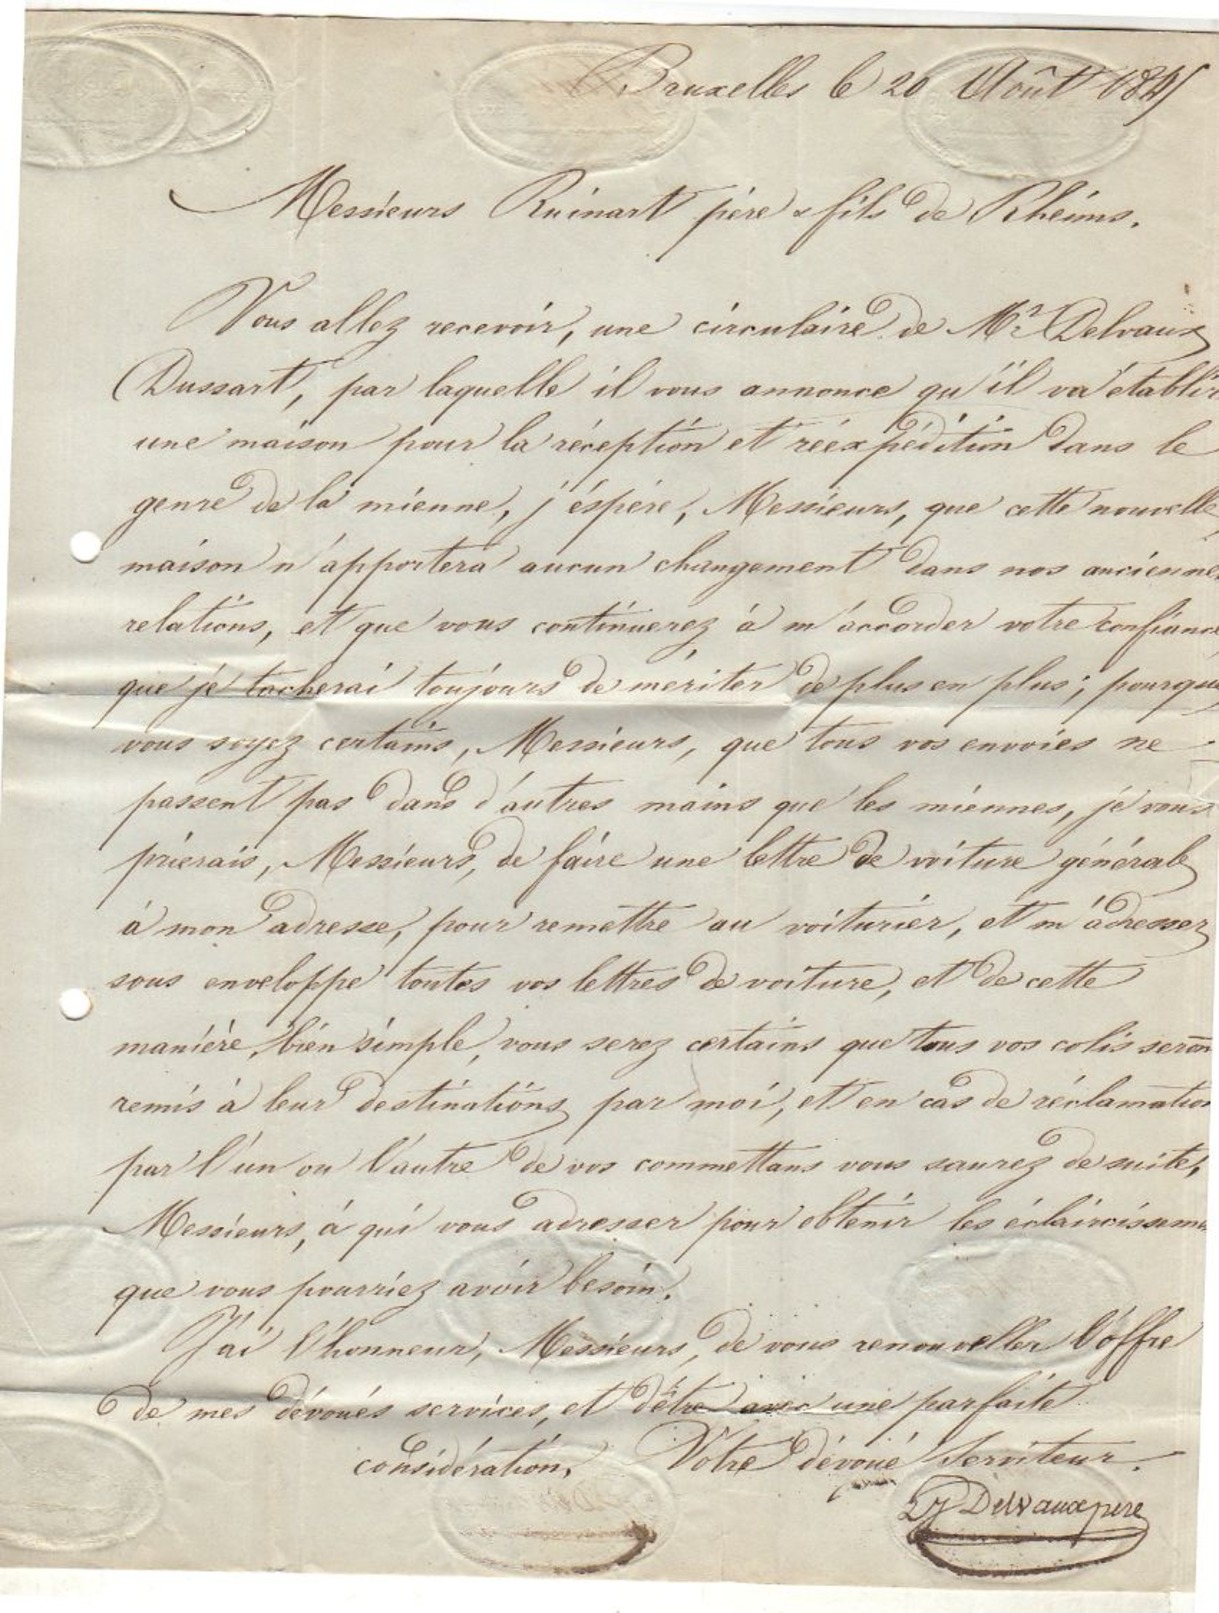 Bruxelles le 20 Août 184
Messieurs Ruinart père & fils de Rheims.
Vous allez recevoir, une circulaire de Mr. Delvaux
Dussart, par laquelle il vous annonce qu'il va établir
une maison pour la réception et réexpédition dans le
genre de la mienne, j'éspére, Messieurs, que cette nouvelle
maison n'apportera aucun changement dans nos ancienne
relations, et que vous continuerez à m'accorder votre confiance
que je tacherai toujours de mériter de plus en plus; pourque
vous soyez certains, Messieurs, que tous vos envoies ne
passent pas dans d'autres mains que les miennes, je vous
prierais, Messieurs, de faire une lettre de voiture générale
à mon adresse, pour remettre au voiturier, et m'adressez
sous enveloppe toutes vos lettres de voiture, et de cette
manière, bien simple, vous serez certains que tous vos colis seron
remis à leur destinations par moi, et en cas de réclamation
par l'un ou l'autre de vos commettans vous saurez de suite,
Messieurs, à qui vous adresser pour obtenir les éclaircisseme
que vous pourriez avoir besoin.
J'ai l'honneur, Messieurs, de vous renouveller l'offre
de mes dévoués services, et d'être avec une parfaite
considération, Votre dévoué Serviteur.
Delvaux pere